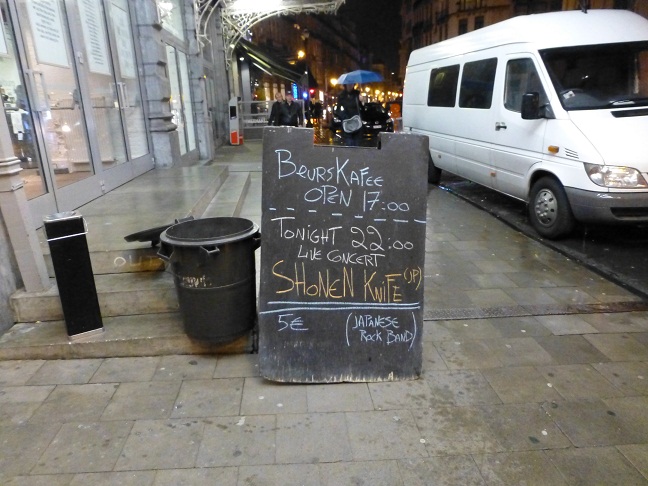 BeursKafee
OPEN 17:00
TONIGHT 22:00
LIVE CONCERT
SHONEN KNIFE (JP)
5€ (JAPANESE
ROCK BAND)